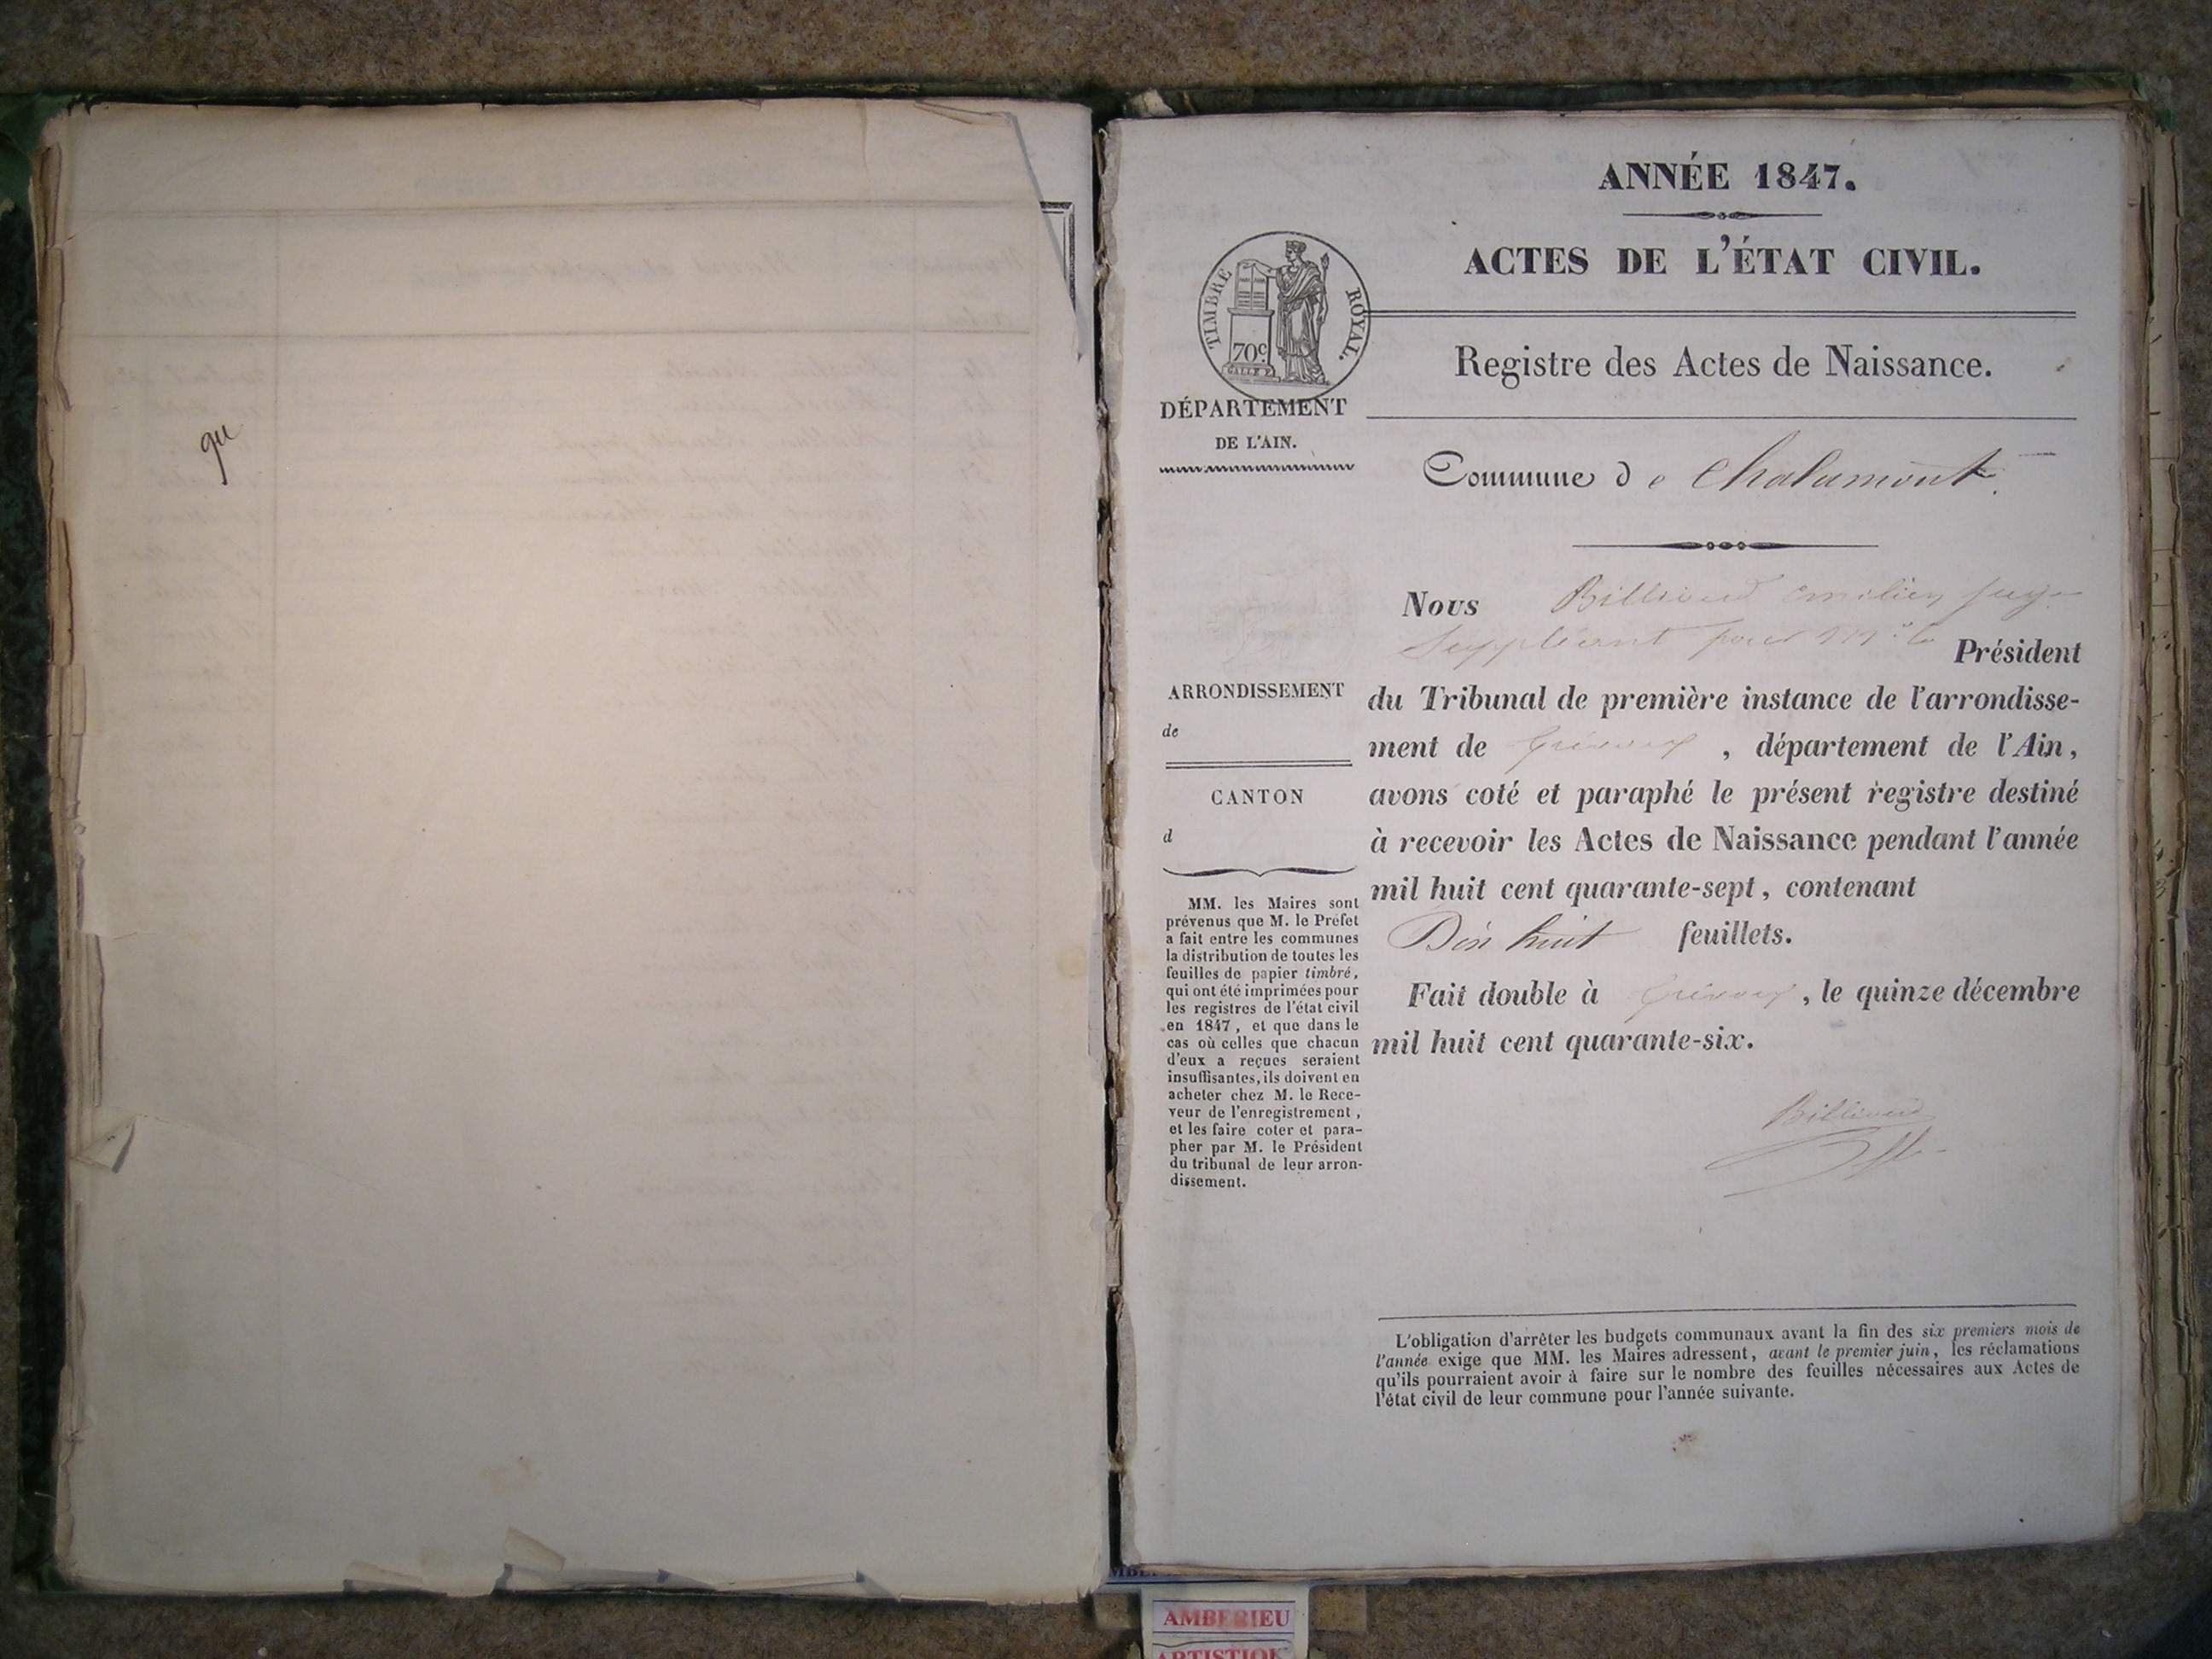 gu
ANNÉE 1847.
ACTES DE L'ÉTAT CIVIL.
TIMBRE ROYAL.
70c
Registre des Actes de Naissance.
DÉPARTEMENT
DE L'AIN.
Commune de Chalamont
Nous Billioud Emilien juge
Suppléant pour Mr le Président
du Tribunal de première instance de l'arrondisse-
ment de Trévoux, département de l'Ain,
avons coté et paraphé le présent registre destiné
à recevoir les Actes de Naissance pendant l'année
mil huit cent quarante-sept, contenant
Dix huit feuillets.
Fait double à Trévoux, le quinze décembre
mil huit cent quarante-six.
Billioud
ARRONDISSEMENT
de
CANTON
d
MM. les Maires sont
prévenus que M. le Préfet
a fait entre les communes
la distribution de toutes les
feuilles de papier timbré,
qui ont été imprimées pour
les registres de l'état civil
en 1847, et que dans le
cas où celles que chacun
d'eux a reçues seraient
insuffisantes, ils doivent en
acheter chez M. le Rece-
veur de l'enregistrement,
et les faire coter et para-
pher par M. le Président
du tribunal de leur arron-
dissement.
L'obligation d'arrêter les budgets communaux avant la fin des six premiers mois de
l'année exige que MM. les Maires adressent, avant le premier juin, les réclamations
qu'ils pourraient avoir à faire sur le nombre des feuilles nécessaires aux Actes de
l'état civil de leur commune pour l'année suivante.
AMBERIEU